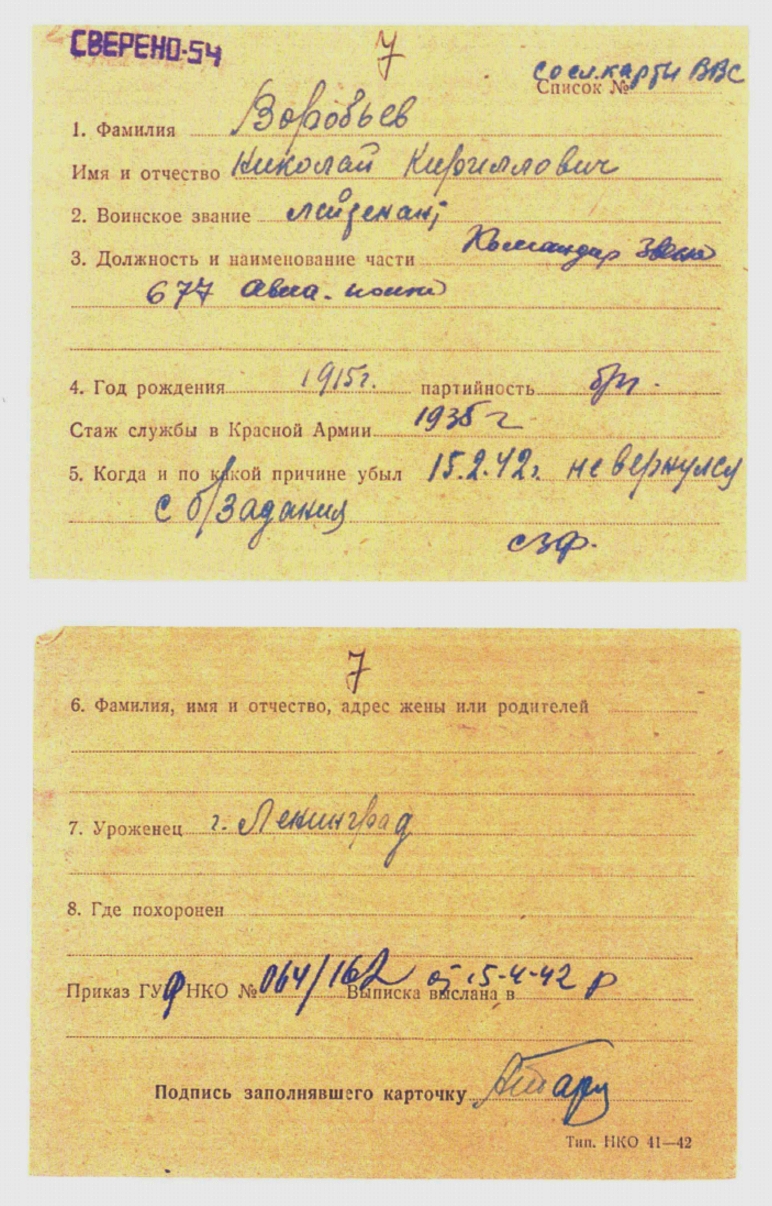 СВЕРЕНО-54
7
с осн. карты ВВС
Список №
1. Фамилия Воробьев
Имя и отчество Николай Кириллович
2. Воинское звание лейтенант
3. Должность и наименование части Командир звена
677 авиа. полка
4. Год рождения 1915 г. партийность б/п.
Стаж службы в Красной Армии 1935 г
5. Когда и по какой причине убыл 15.2.42 г. не вернулся
с б/задания
СЗФ.
7
6. Фамилия, имя и отчество, адрес жены или родителей
7. Уроженец г. Ленинград
8. Где похоронен
Приказ ГУФ НКО № 064/162 от 15-4-42 р
Выписка выслана в
Подпись заполнявшего карточку
Тип. НКО 41—42